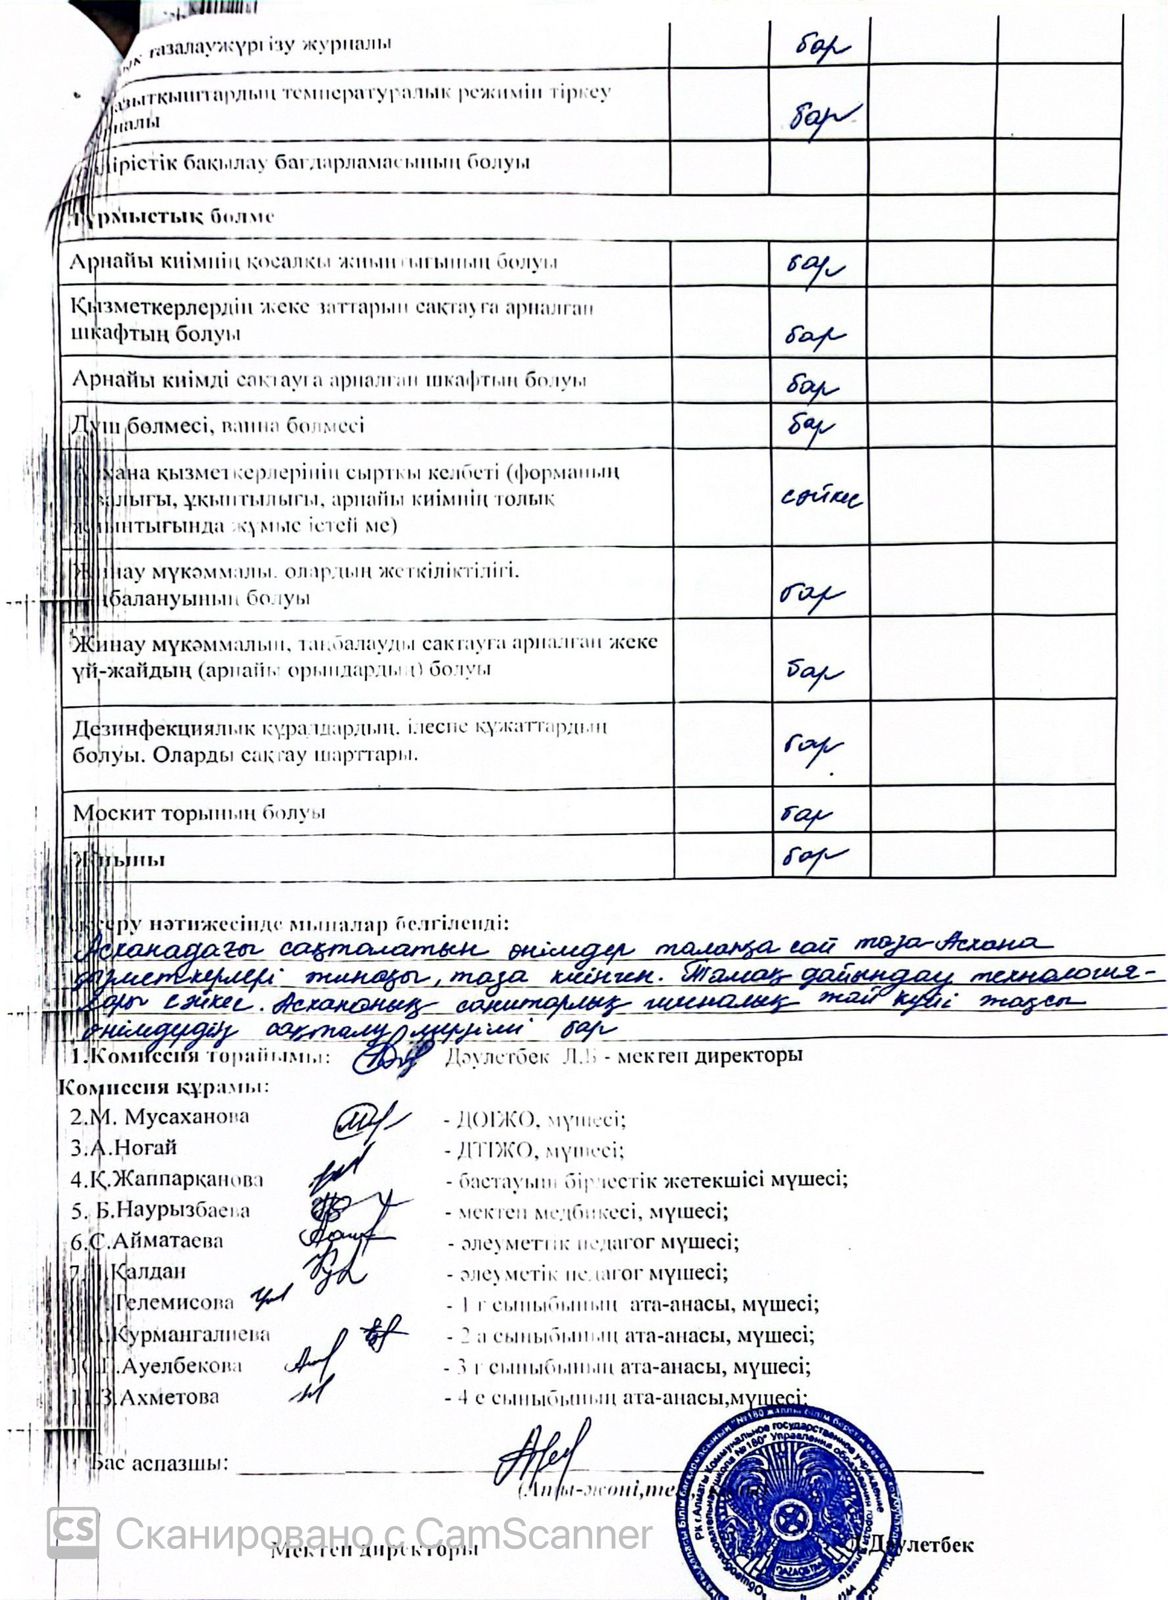 тазалаужүргізу журналы бар
температуралық режимін тіркеу
бар
бақылау бағдарламасының болуы
Тұрмыстық бөлме
Арнайы киімнің қосалқы жиынтығының болуы бар
Қызметкерлердің жеке заттарын сақтауға арналған
шкафтың болуы бар
Арнайы киімді сақтауға арналған шкафтың болуы бар
Душ бөлмесі, ванна бөлмесі бар
қызметкерлерінің сыртқы келбеті (форманың
ұқыптылығы, арнайы киімнің толық сәйкес
жұмыс істей ме)
Жинау мүкәммалы, олардың жеткіліктілігі.
болуы бар
Жинау мүкәммалын, таңбалауды сақтауға арналған жеке
үй-жайдың (арнайы орындардың) болуы бар
Дезинфекциялық құралдардың, ілеспе құжаттардың
болуы. Оларды сақтау шарттары. бар
Москит торының болуы бар
бар
нәтижесінде мыналар белгіленді:
Асханадағы сақталатын өнімдер талапқа сай таза. Асхана
қызметкерлері жинақы, таза киінген. Тамақ дайындау технология-
лары сәйкес. Асхананың санитарлық жай күйі жақсы
өнімдердің сақталу мерзімі бар
1.Комиссия төрайымы: Дәулетбек Л.Б - мектеп директоры
Комиссия құрамы:
2.М. Мусаханова - ДОІЖО, мүшесі;
3.А.Ногай - ДТІЖО, мүшесі;
4.Қ.Жаппарқанова - бастауыш бірлестік жетекшісі мүшесі;
5. Б.Наурызбаева - мектеп медбикесі, мүшесі;
6.С.Айматаева - әлеуметтік педагог мүшесі;
Қалдан - әлеуметік педагог мүшесі;
Телемисова - 1 г сыныбының ата-анасы, мүшесі;
Курмангалиева - 2 а сыныбының ата-анасы, мүшесі;
Ауелбекова - 3 г сыныбының ата-анасы, мүшесі;
11.З.Ахметова - 4 е сыныбының ата-анасы,мүшесі;
Бас аспазшы:
Мектеп директоры Дәулетбек
CS Сканировано с CamScanner